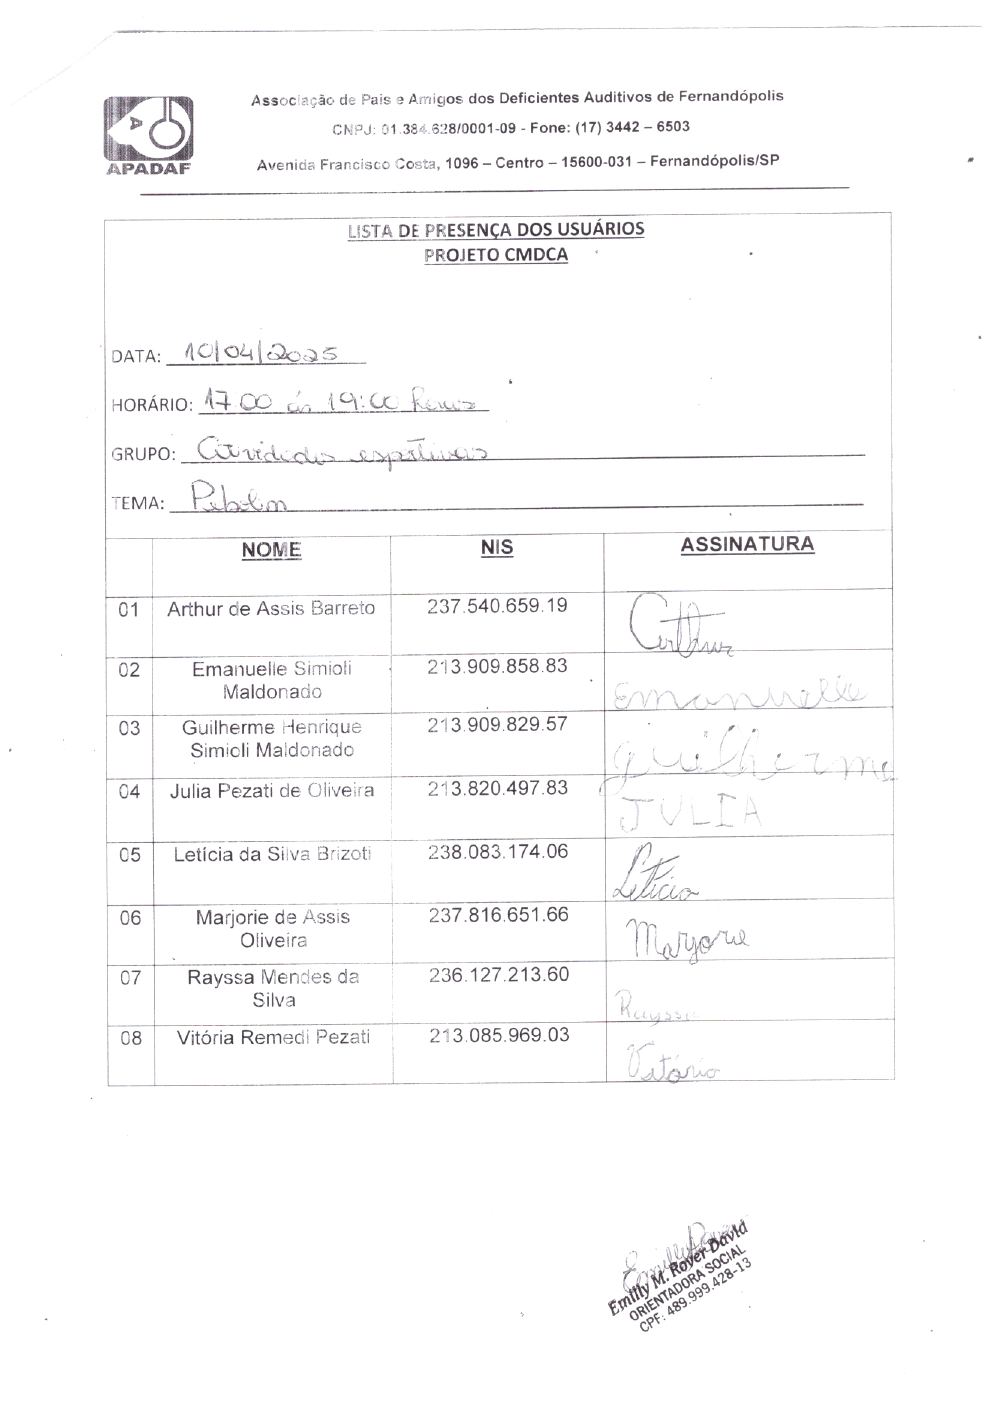 Associação de Pais e Amigos dos Deficientes Auditivos de Fernandópolis
CNPJ: 01.384.628/0001-09 - Fone: (17) 3442 – 6503
Avenida Francisco Costa, 1096 – Centro – 15600-031 – Fernandópolis/SP
APADAF
LISTA DE PRESENÇA DOS USUÁRIOS
PROJETO CMDCA
DATA: 10/04/2025
HORÁRIO: 17:00 ás 19:00 horas
GRUPO: Atividades esportivas
TEMA: Pebolim
NOME NIS ASSINATURA
01 Arthur de Assis Barreto 237.540.659.19 Arthur
02 Emanuelle Simioli 213.909.858.83
Maldonado Emanuelle
03 Guilherme Henrique 213.909.829.57
Simioli Maldonado Guilherme
04 Julia Pezati de Oliveira 213.820.497.83 JULIA
05 Letícia da Silva Brizoti 238.083.174.06 Letícia
06 Marjorie de Assis 237.816.651.66
Oliveira Marjorie
07 Rayssa Mendes da 236.127.213.60
Silva Rayssa
08 Vitória Remedi Pezati 213.085.969.03 Vitória
Emilly M. Rover David
ORIENTADORA SOCIAL
CPF: 489.999.428-13